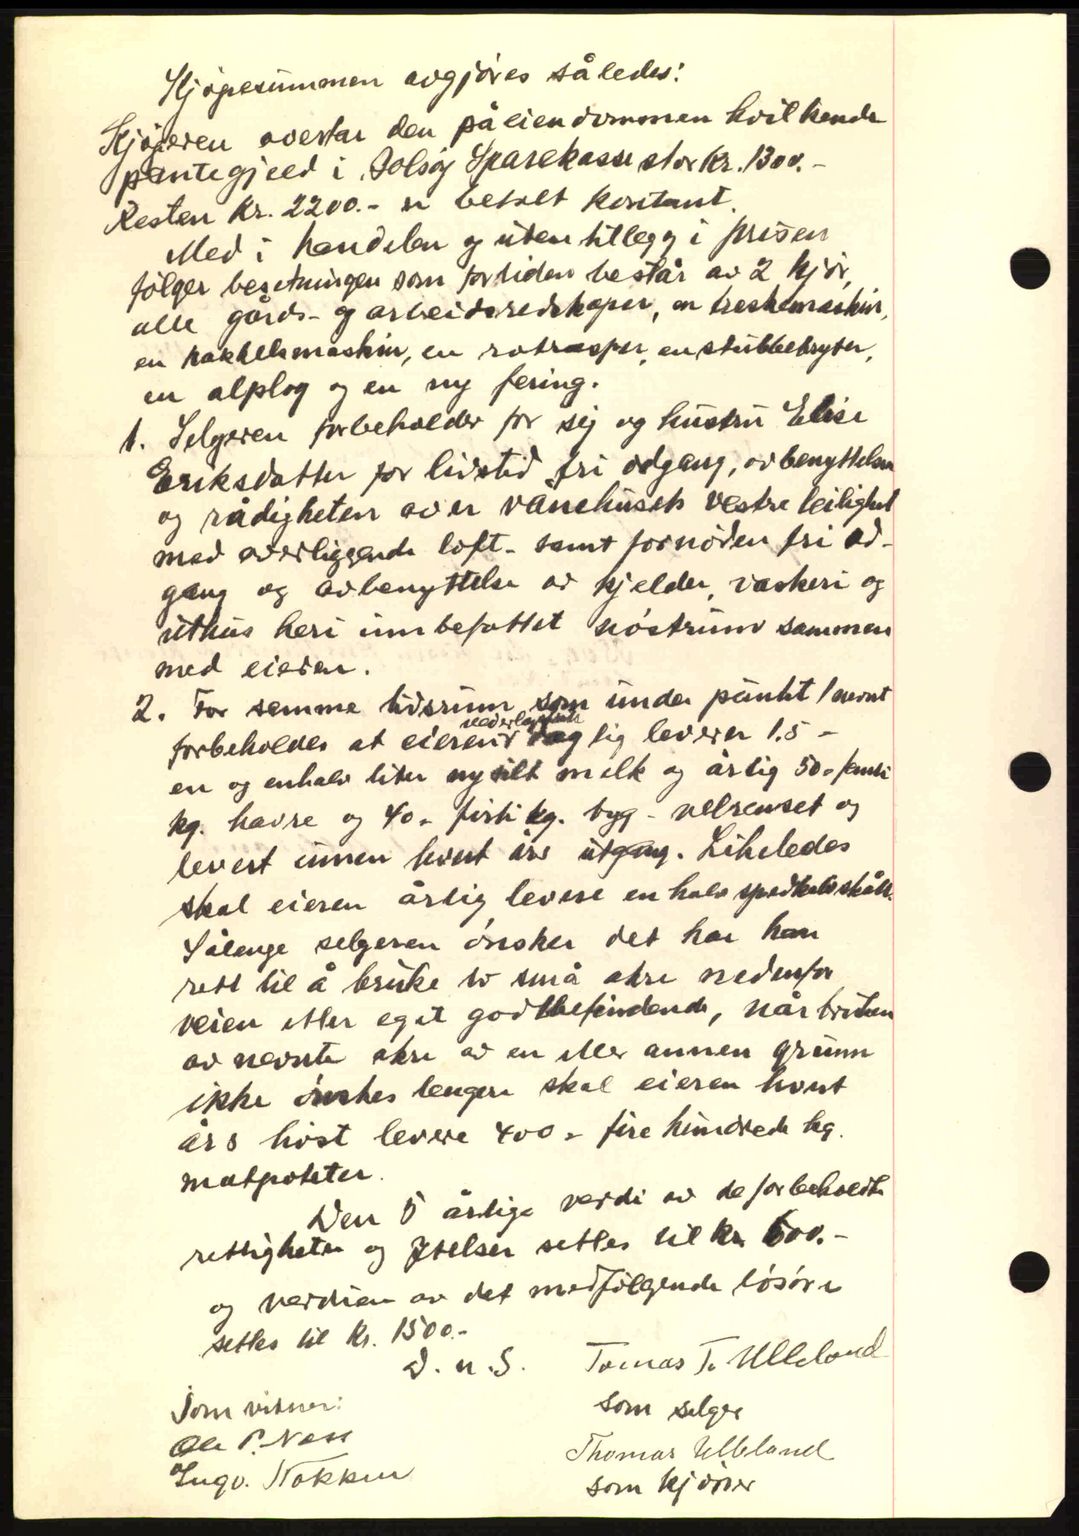 Kjøpesummen avgjøres således:
Kjøperen overtar den på eiendommen hvilkende
pantegjeld i Bolsøy Sparekasse stor kr. 1300.-
Resten kr. 2200.- er betalt kontant.
Med i handelen og uten tillegg i prisen
følger besetningen som for tiden består av 2 kjør,
alle gårds- og arbeidsredskaper, en treskemaskin,
en hakkelsmaskin, en rotrasper, en stubbebryter,
en alplog og en ny fering.
1. Selgeren forbeholder for sej og hustru Elise
Eriksdatter for livstid fri adgang, avbenyttelsen
og rådigheten over vånehusets vestre leilighet
med overliggende loft - samt fornøden fri ad-
gang og avbenyttelse av kjelder, vaskeri og
uthus heri innbefattet nøstrum sammen
med eieren.
2. For samme tidsrum som under punkt 1 nevnt
forbeholdes at eieren vederlagsfritt daglig leverer 1.5 -
en og enhalv liter nysilt melk og årlig 50 - femti
kg. havre og 40 - førti kg. byg - velrenset og
levert innen hvert års utgang. Likeledes
skal eieren årlig levere en halv spedkalvskått.
Sålenge selgeren ønsker det har han
rett til å bruke to små akre nedenfor
veien etter eget godtbefindende, når bruken
av nevnte akre av en eller annen grunn
ikke ønskes lenger skal eieren hvert
års høst levere 400 - fire hundrede kg.
matpoteter.
Den 5 årlige verdi av de forbeholdte
rettigheter og ytelser settes til kr. 600.-
og verdien av det medfølgende løsøre
settes til kr. 1500.-
D. u. S.
Tomas T. Ulleland
som selger
Som vitner:
Ole P. Ness
Ingv. Nakken
Thomas Ulleland
som kjøper